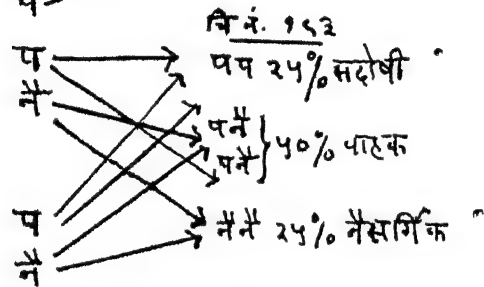 चि नं. १९३
प
पप २५% सदोषी
नै
पनै
पनै } ५०% वाहक
प
नैनै २५% नैसर्गिक
नै